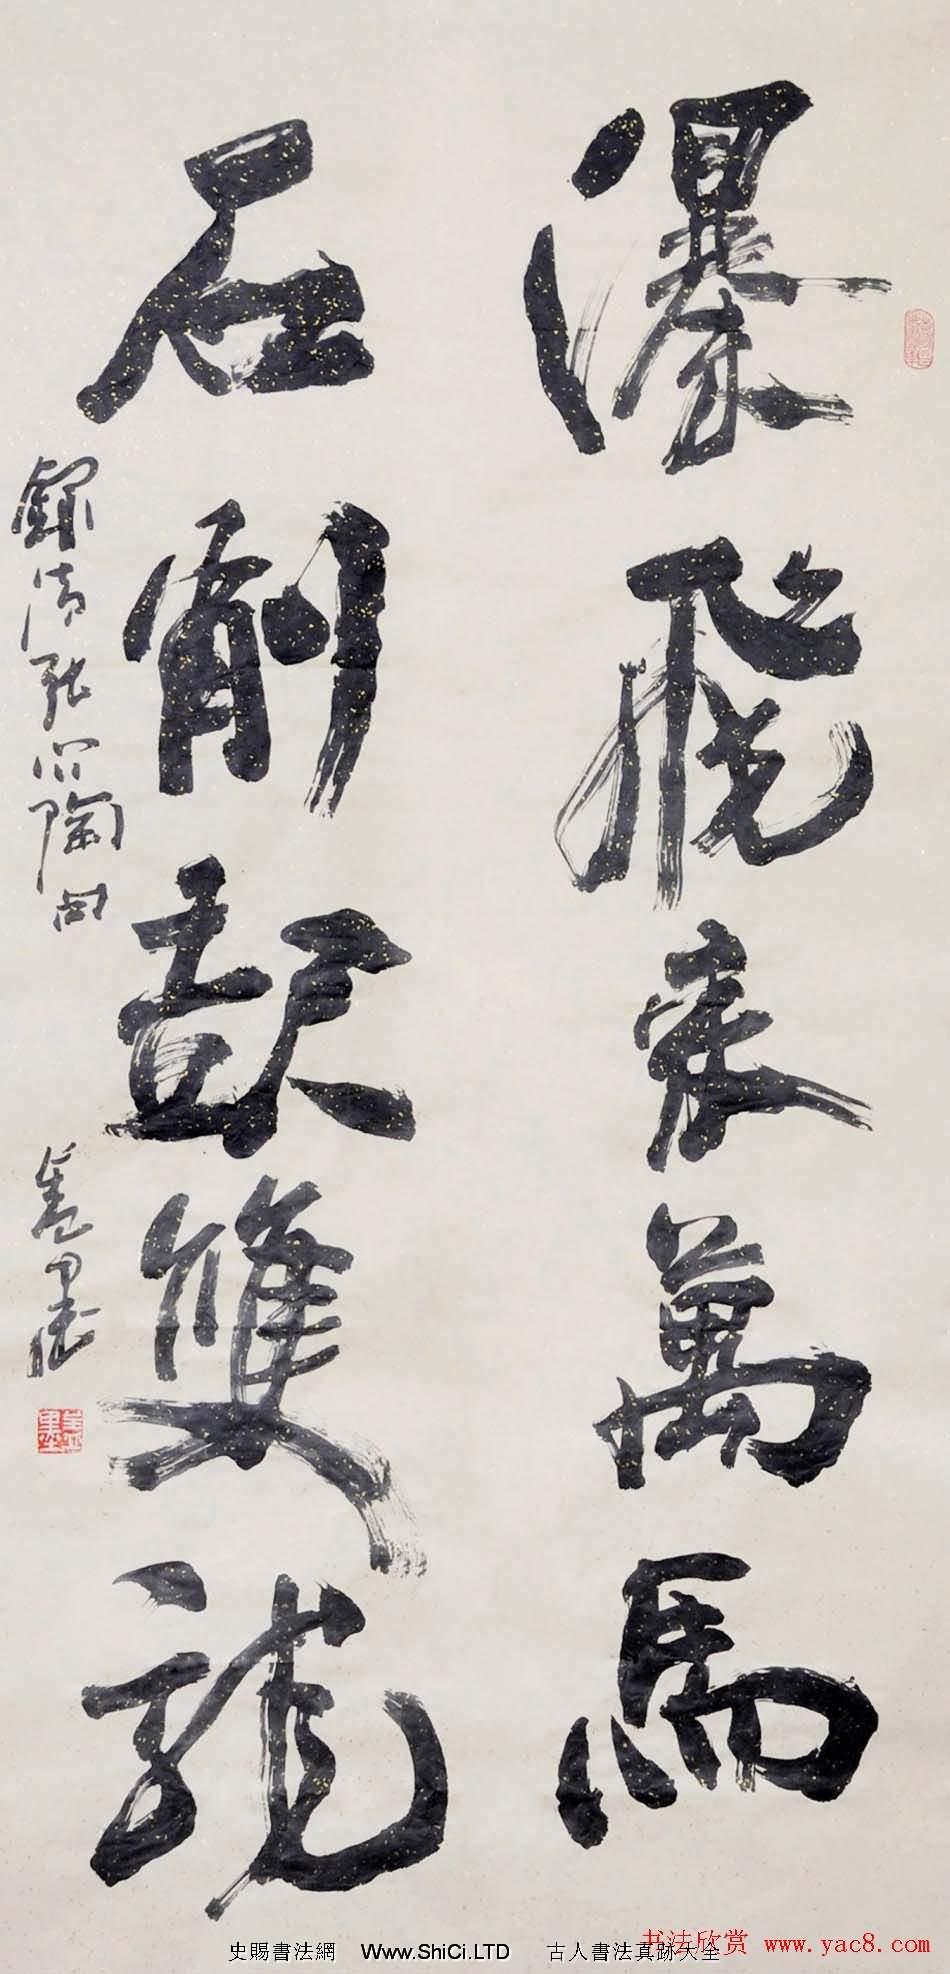 瀑飛來萬馬
石削起雙龍
錄清張問陶句
羨墨
史賜書法網 Www.ShiCi.LTD 古人書法真跡大全
书法欣赏 www.yac8.com